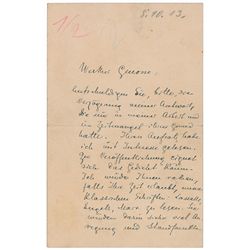 1/2
8. 10. 13.
Werter Genosse,
entschuldigen Sie, bitte, die
Verzögerung meiner Antwort,
die nur in meiner Arbeit und
im Zeitmangel ihren Grund
hatte. Ihren Aufsatz habe
ich mit Interesse gelesen.
Zur Veröffentlichung eignet
sich das Gedicht kaum.
Ich würde Ihnen raten,
falls Ihre Zeit erlaubt, unsre
Klassischen Schriften, Lassalle,
Engels, Marx zu lesen. Sie
würden darin sehr viel An-
regung und Standpunkte